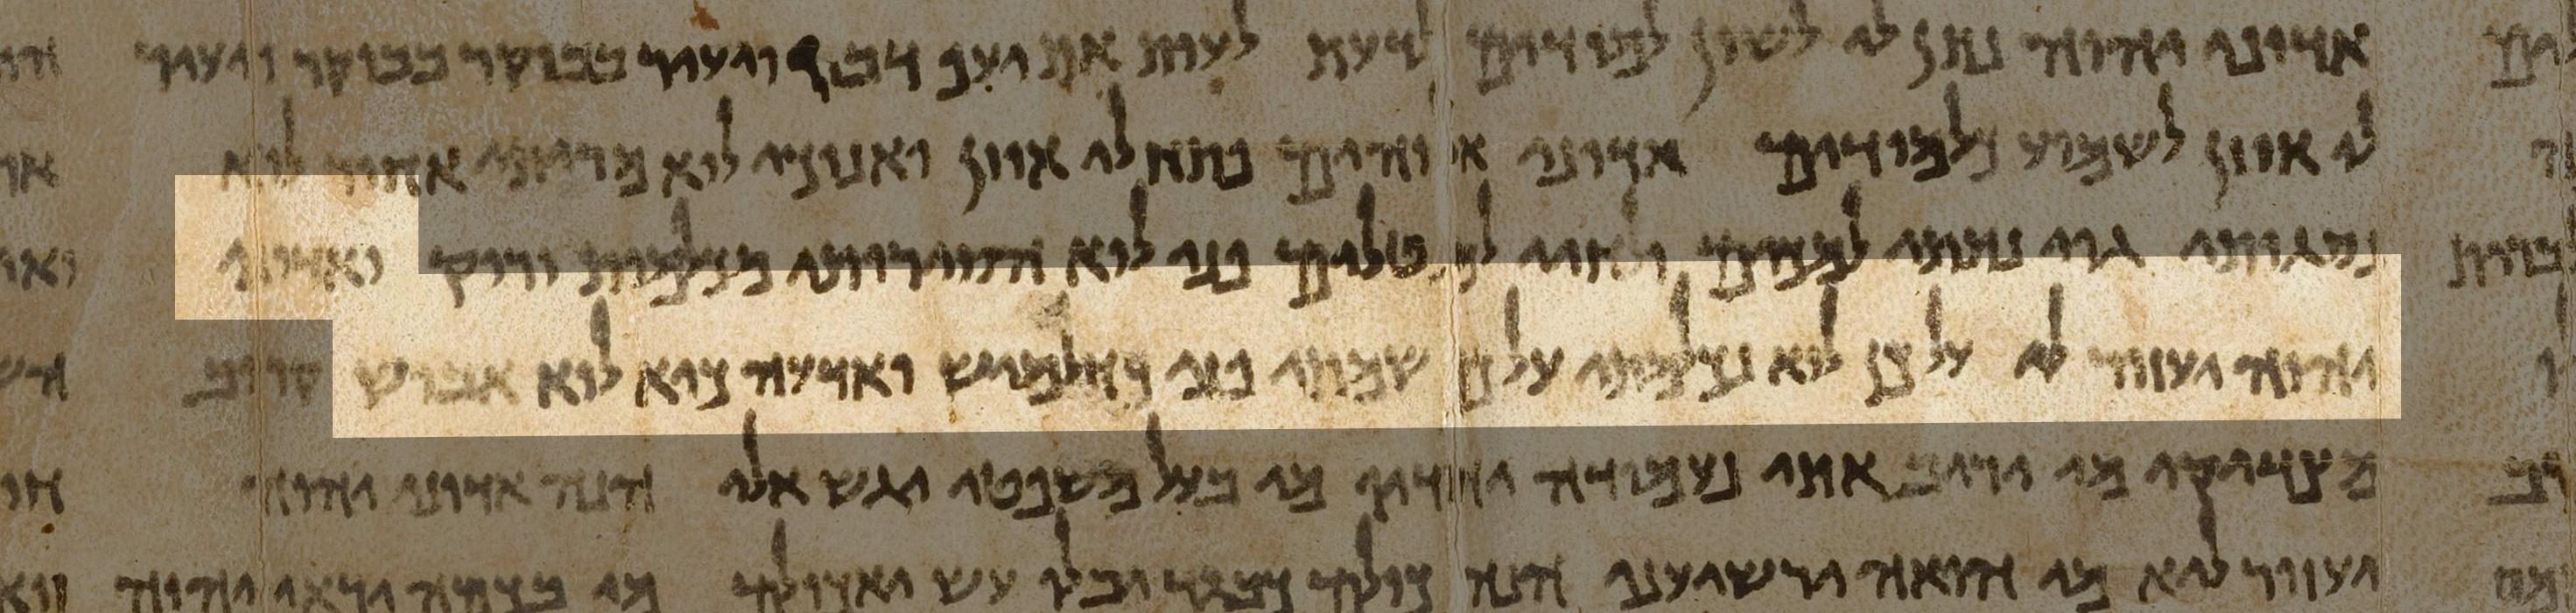 אדוני יהוה נתן לי לשון למודים לדעת לעות את יעף דבר ויעיר בבוקר בבוקר ויעיר
לי אוזן לשמוע כלמודים אדוני אלוהים פתח לי אוזן ואנוכי לוא מריתי אחור לוא
נסגותי גוי נתתי למכים ולחיי למטלים פני לוא הסירותי מכלמות ורוק ואדוני
יהוה יעזור לי על כן לוא נכלמתי על כן שמתי פני כחלמיש ואדעה כיא לוא אבוש קרוב
מצדיקי מי יריב אתי נעמודה יחדיו מי בעל משפטי יגש אלי הנה אדוני יהוה
יעזור ליא מי הואה ירשיעני הנה כולם כבגד יבלו עש יאכולם מי בכמה ירא יהוה